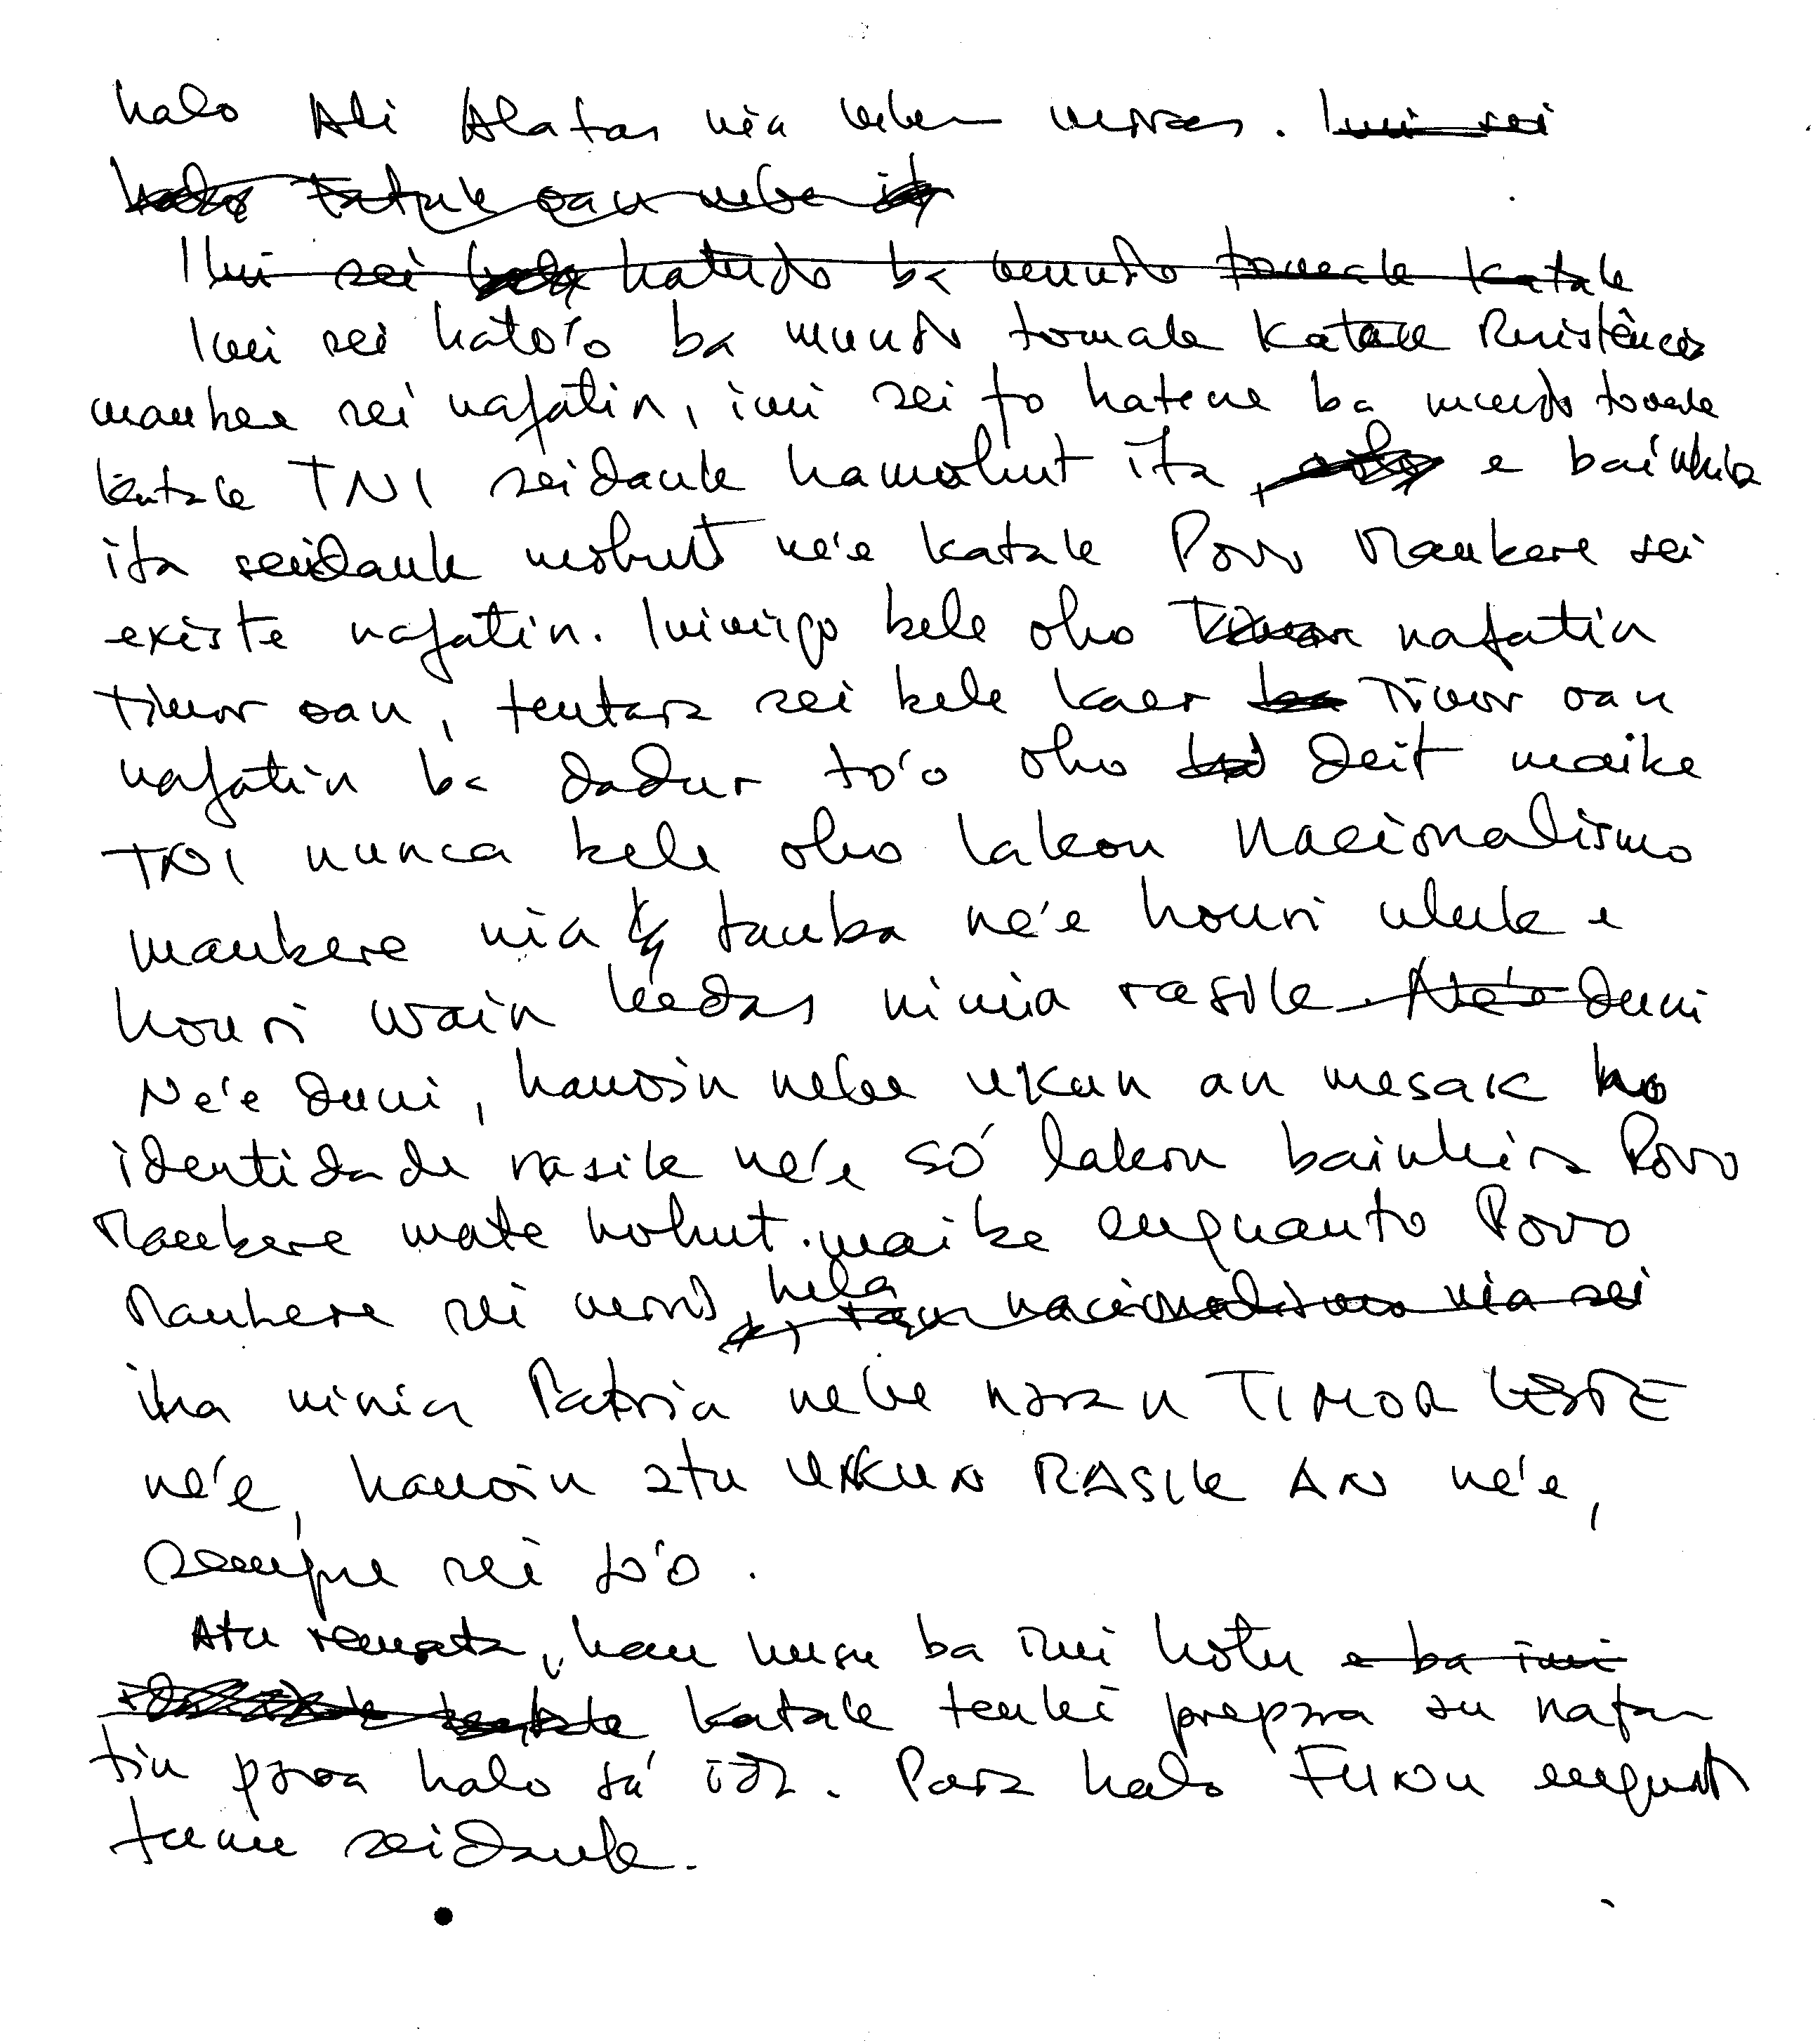 halo Ali Alatas nia ibun moras. Imi sei
halo katak oan nebe ita
Imi sei halo hatudo ba mundo tomak katak
Imi sei hato'o ba mundo tomak katak Resistência
maubere sei nafatin, imi sei fo hatene ba mundo tomak
katak TNI seidauk hamohut ita, e bainhira
ita seidauk mohut ne'e katak Povo Maubere sei
existe nafatin. Inimigo bele oho Timor nafatin
Timor oan, tentara sei bele kaer ba Timor oan
nafatin ba dadur to'o oho deit maibe
TNI nunca bele oho lakon nacionalismo
maubere nia tamba ne'e houri uluk e
houri wain kedas ninia rasik. Ne'e duni
Ne'e duni, hanoin nebe ukun an mesak ho
identidade rasik ne'e só lakon bainhira Povo
Maubere mate hohut. maibe enquanto Povo
Maubere sei moris, hela nacionalismo nia sei
iha ninia Patria nebe naran TIMOR LESTE
ne'e, hanoin atu UKUN RASIK AN ne'e,
sempre sei to'o.
Atu remata, hau husu ba imi hotu e ba imi
katak tenki prepara an nafa-
tin para halo sá ida. Para halo FUNU enquanto
tuniu seidauk.